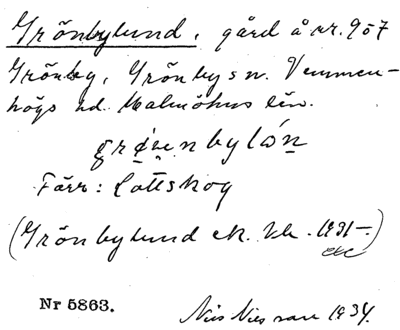 Grönbylund, gård å nr. 9 o 7
Grönby, Grönby sn. Vemmen-
högs hd. Malmöhus län.
Förr: Lottskog
(Grönbylund ek. kb. 1931-)
Nr 5863.
Nils Nilsson 1934.